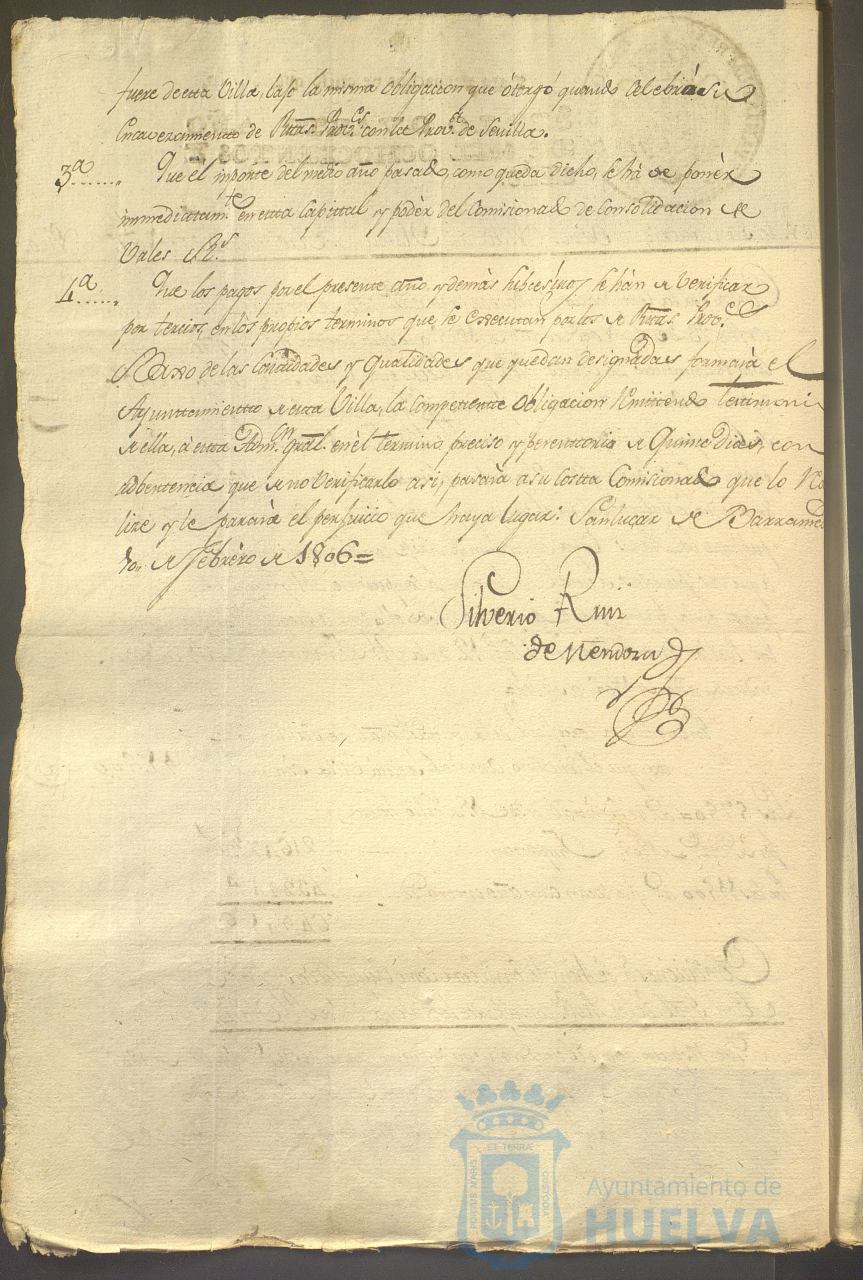 fuere de esta Villa, bajo la misma obligacion que otorgó quando celebrase
Encavezamiento de Rttas. Prov.es con la Prov.a de Sevilla.
3a...... Que el importe del medio año pasado, como queda dicho, se há de ponér
immediatam.te en esta Capital y podér del Comisionado de Consolidacion de
Vales R.s
4a...... Que los pagos por el presente año, y demás subcesivos se hán de Verificar
por tercios, en los propios terminos que se executan por los de Rttas. Prov.es
Baxo de las Cantidades y qualidades que quedan designadas formará el
Ayunttamiento de esta Villa, la competente Obligacion remitiendo testimoni
de ella, á esta Adm.on gral. en él termino preciso y perentorio de Quince Dias, con
adbertencia que de no Verificarlo asi, pasará a su costta Comisionado que lo
lize y le parará el perjuicio que haya lugar. Sanlucar de Barrame
de Febrero de 1806=
Silverio Ruiz
de Mendoza
PORTUS MARIS
ET TERRAE
CUSTODIA
Ayuntamiento de
HUELVA